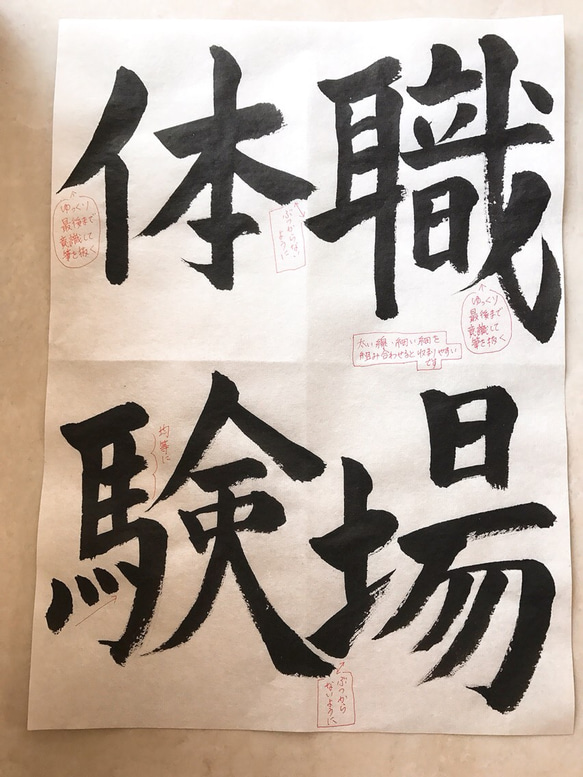 職場
体験
ゆっくり
最後まで
意識して
筆を抜く
太い線・細い線を
組み合わせると収まりやすい
です
ぶつからない
ように
ゆっくり
最後まで
意識して
筆を抜く
均等に
ぶつから
ないように